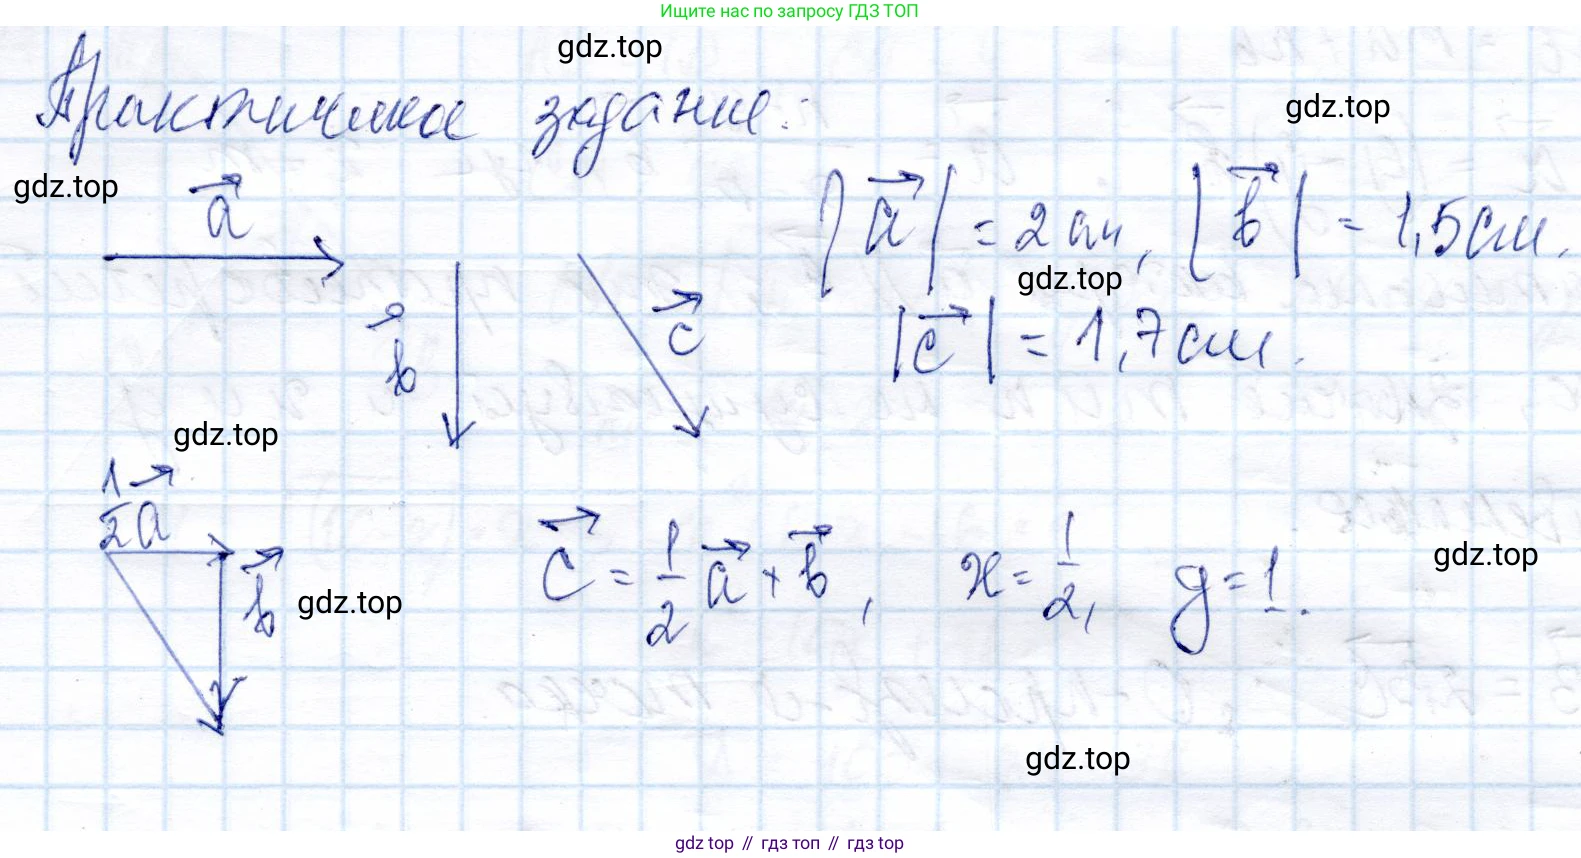 Ищите нас по запросу ГДЗ ТОП
gdz.top
Практическое задание:
gdz.top
gdz.top
a⃗
|a⃗| = 2 см, |b⃗| = 1,5 см.
gdz.top
b⃗
c⃗
|c⃗| = 1,7 см.
gdz.top
1/2 a⃗
b⃗
c⃗ = 1/2 a⃗ + b⃗, x = 1/2, y = 1.
gdz.top
gdz.top
gdz.top
gdz top // гдз топ // гдз top